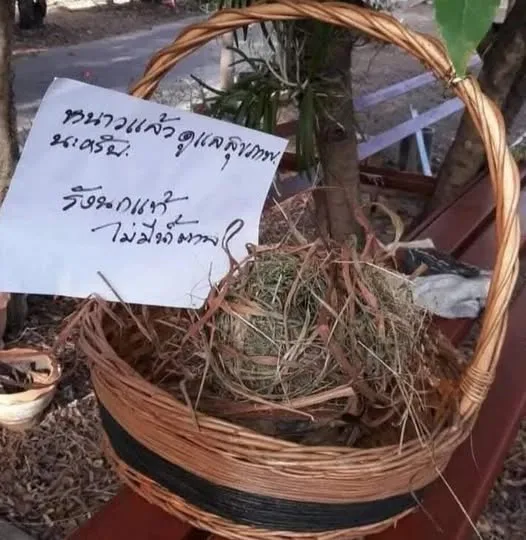 หนาวแล้ว ดูแลสุขภาพ
นะครับ.
รังนกแท้
ไม่มีน้ำตาล